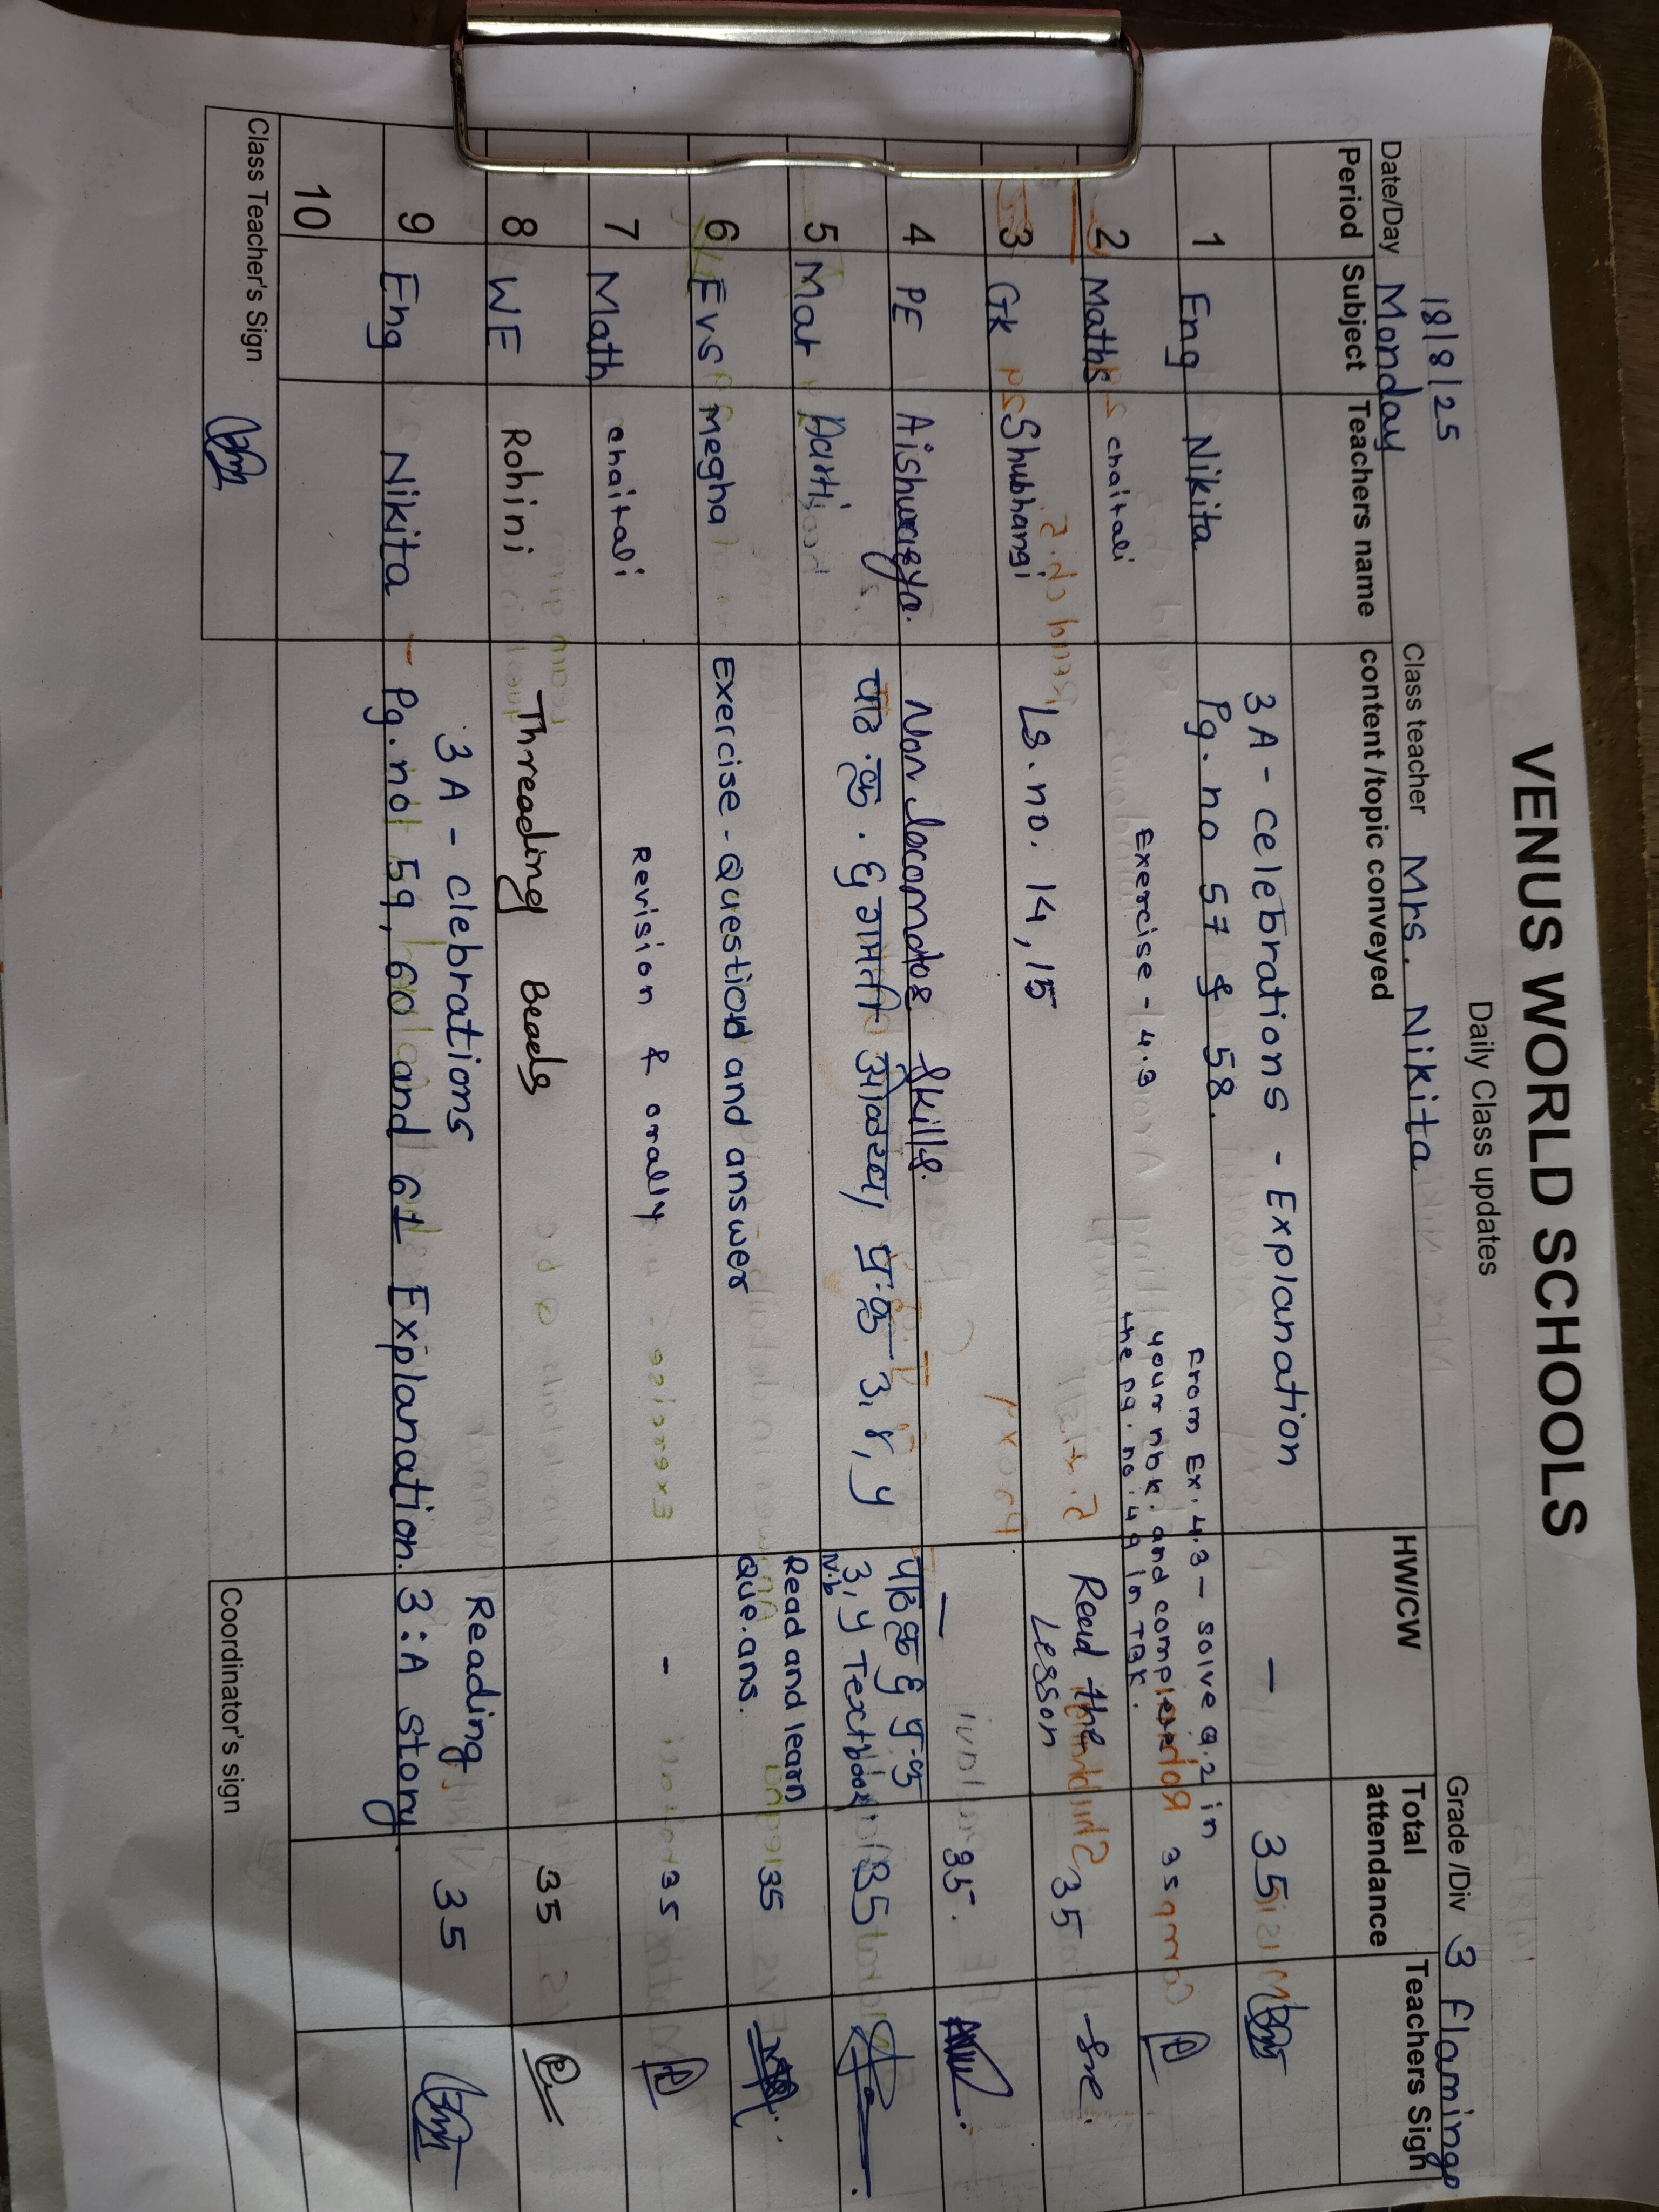 VENUS WORLD SCHOOLS
Daily Class updates
18/8/25
Date/Day Monday Class teacher Mrs. Nikita Grade /Div 3 flamingo
Period Subject Teachers name content /topic conveyed HW/CW Total attendance Teachers Sign
1 Eng Nikita 3A - celebrations - Explanation — 35
Pg. no 57 & 58.
2 Maths chaitali Exercise - 4.3 From Ex. 4.3 — solve Q.2 in 35
your nbk. and complete
the pg. no. 49 in TBK.
3 Gk Shubhangi Ls. no. 14, 15 Read the 35
Lesson
4 PE Aishwarya. Non locomotor skills. — 35.
5 Mar Aarti पाठ.क्र. ६ गमती ओळखा प्र.क्र 3, ४, ५ पाठ क्र ६ प्र.क्र 35
3, ५ Textbook
N.b
6 Evs Megha Exercise - Question and answer Read and learn 35
Que. ans.
7 Math chaitali Revision & orally - 35
8 WE Rohini Threading Beads 35
9 Eng Nikita 3A - clebrations Reading 35
Pg. no 59, 60 and 61 Explanation. 3:A story.
10
Class Teacher's Sign Coordinator's sign